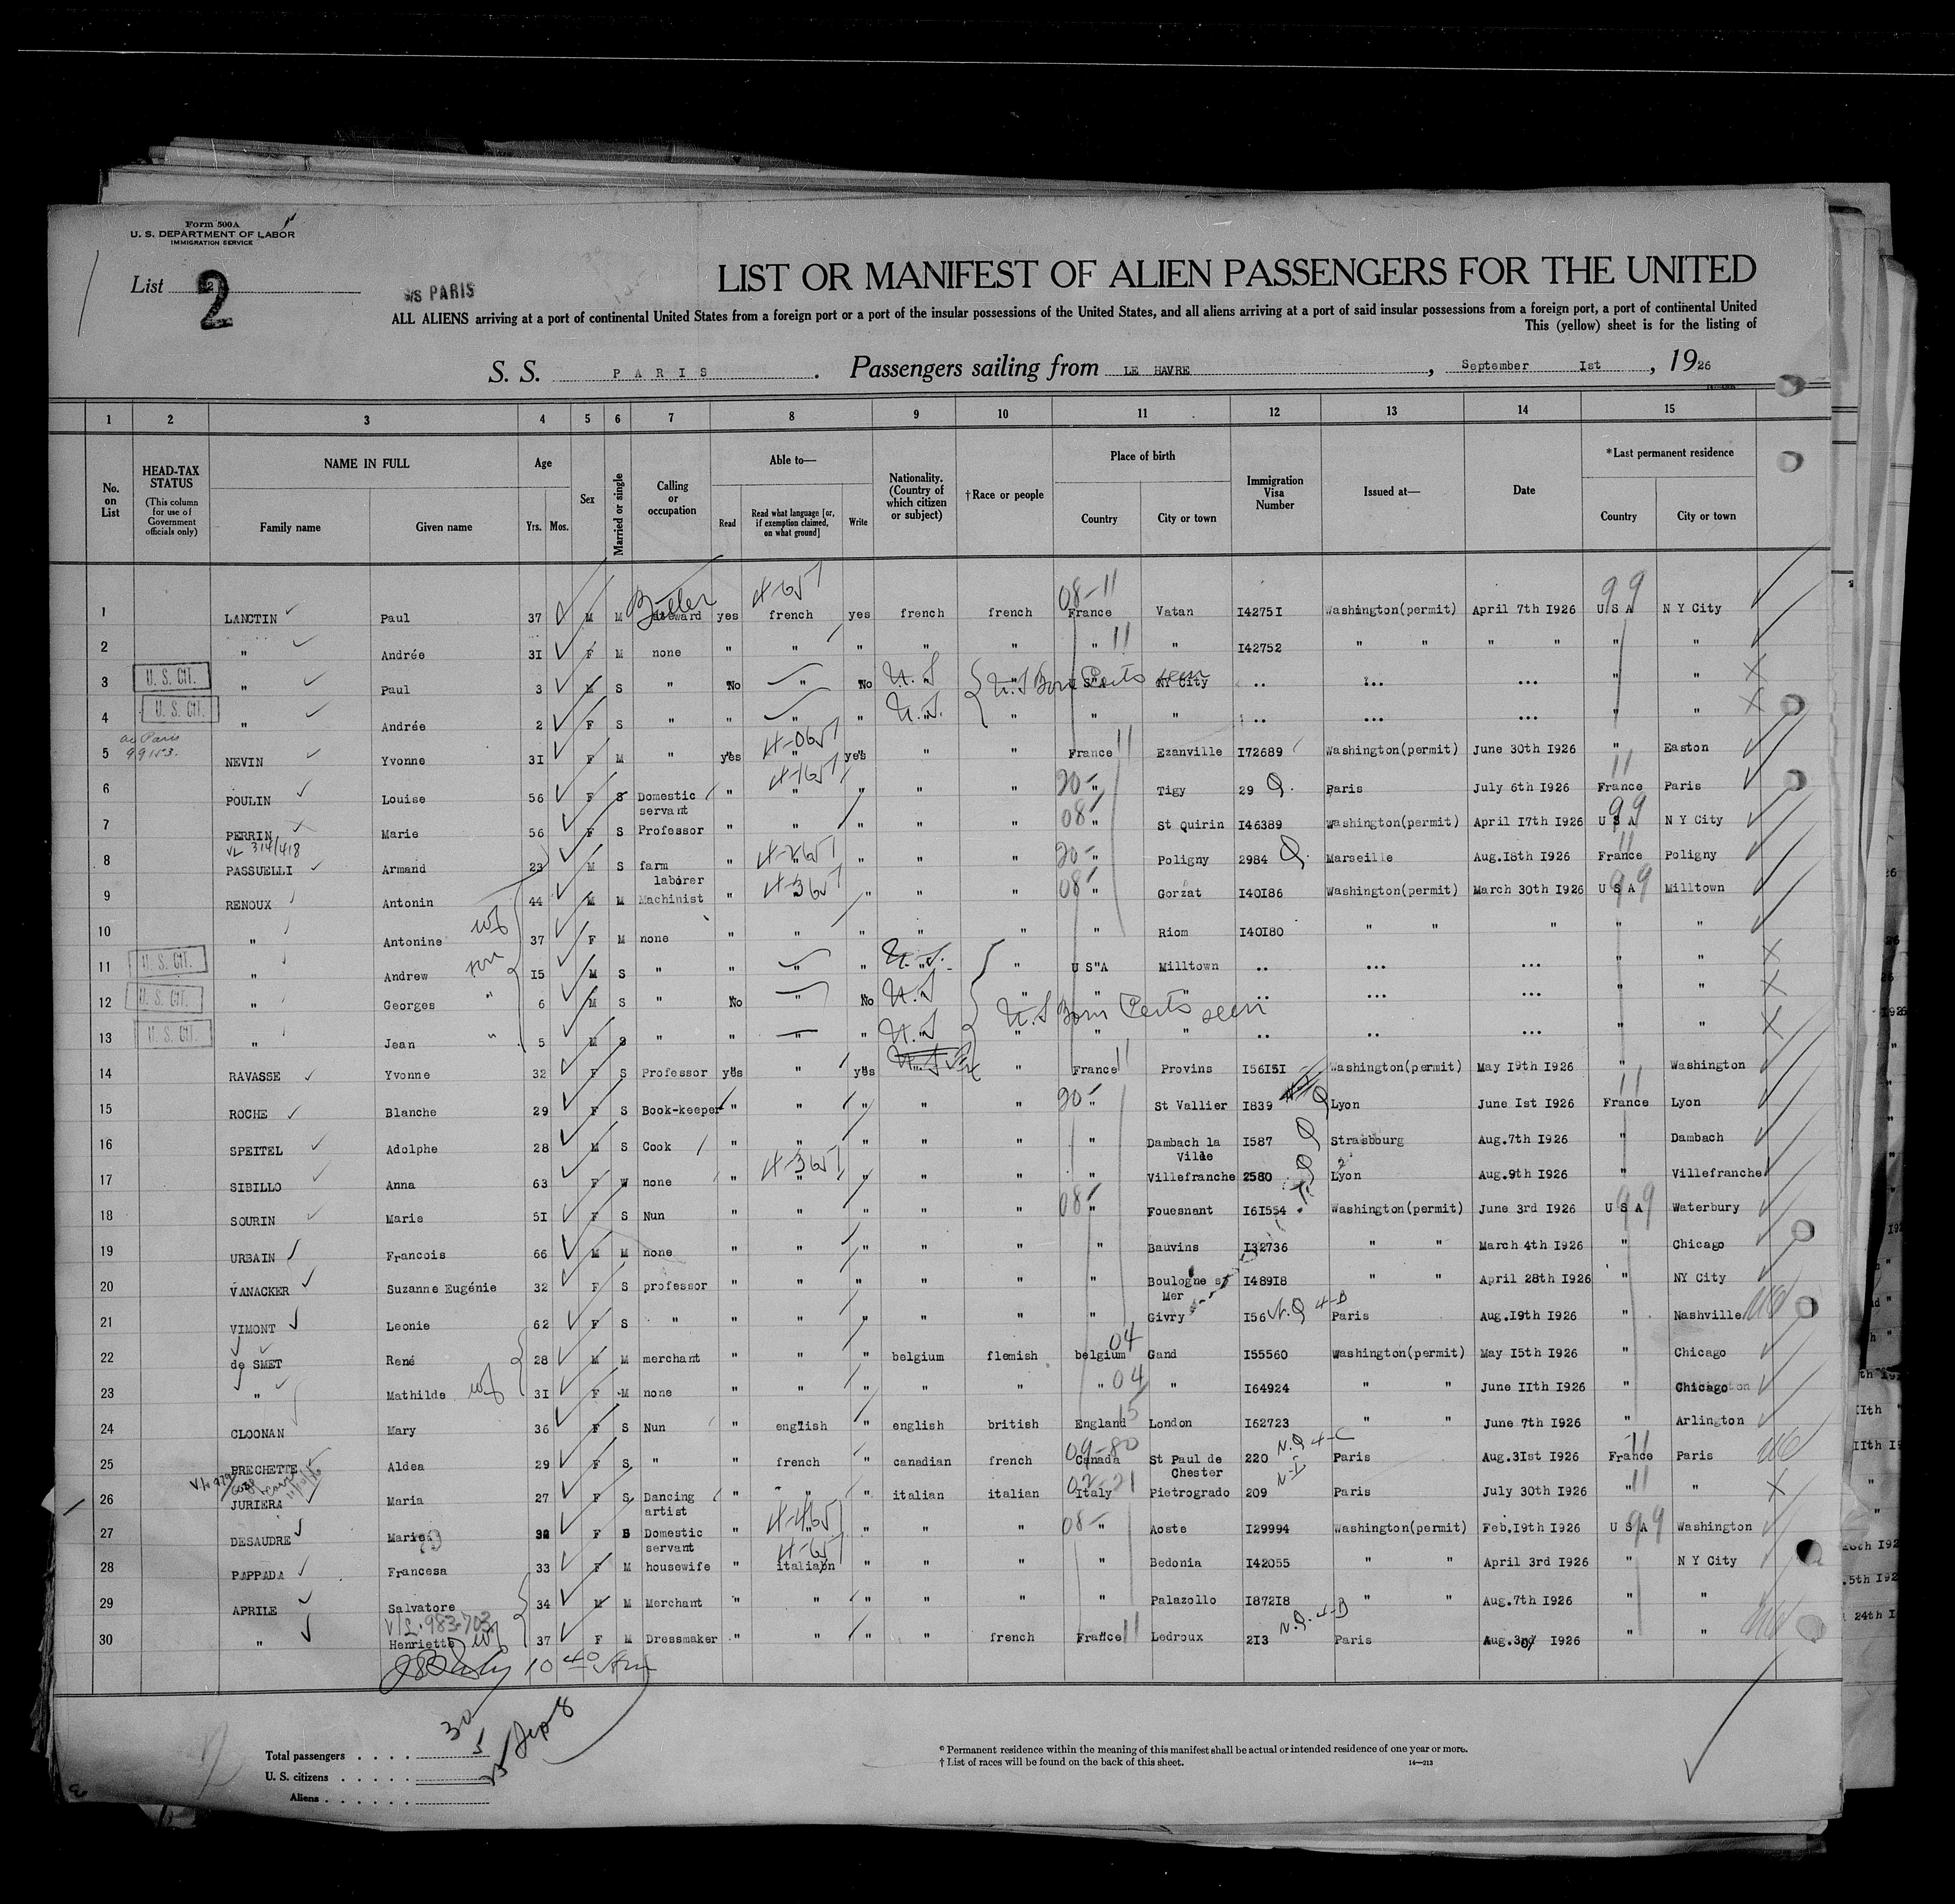 Form 500A
U. S. DEPARTMENT OF LABOR
IMMIGRATION SERVICE
List 2
S/S PARIS
LIST OR MANIFEST OF ALIEN PASSENGERS FOR THE UNITED
ALL ALIENS arriving at a port of continental United States from a foreign port or a port of the insular possessions of the United States, and all aliens arriving at a port of said insular possessions from a foreign port, a port of continental United
This (yellow) sheet is for the listing of
S. S. PARIS. Passengers sailing from LE HAVRE, September Ist, 1926
1 2 3 4 5 6 7 8 9 10 11 12 13 14 15
No. on List
HEAD-TAX STATUS (This column for use of Government officials only)
NAME IN FULL Family name Given name
Age Yrs. Mos.
Sex
Married or single
Calling or occupation
Able to— Read Read what language [or, if exemption claimed, on what ground] Write
Nationality. (Country of which citizen or subject)
†Race or people
Place of birth Country City or town
Immigration Visa Number
Issued at—
Date
*Last permanent residence Country City or town
1 LANCTIN Paul 37 M M Butler yes french yes french french 08-11 France Vatan I4275I Washington(permit) April 7th I926 99 U S A N Y City
2 " Andrée 3I F M none " " " " " " 11 " I42752 " " " " " "
3 U. S. CIT. " Paul 3 M S " No " No U.S " U.S Born Certs seen U S A NY City .. ... ... " "
4 U. S. CIT. " Andrée 2 F S " " " " U.S. " " " .. ... ... " "
5 99153. NEVIN Yvonne 3I F M " yes " yes " " France 11 Ezanville I72689 Washington(permit) June 30th I926 " Easton
6 POULIN Louise 56 F S Domestic servant " " " " " 20- " Tigy 29 Q. Paris July 6th I926 11 France Paris
7 PERRIN Marie 56 F S Professor " " " " " 08- " St Quirin I46389 Washington(permit) April I7th I926 99 U S A N Y City
VL 314/418
8 PASSUELLI Armand 23 M S farm laborer " " " " " 20- " Poligny 2984 Q. Marseille Aug.I8th I926 11 France Poligny
9 RENOUX Antonin 44 M M Machinist " " " " " 08- " Gorzat I40I86 Washington(permit) March 30th I926 99 U S A Milltown
10 " Antonine wf 37 F M none " " " " " " Riom I40I80 " " " " "
11 U. S. CIT. " Andrew son I5 M S " " " " U.S. " U S A Milltown .. ... ... " "
12 U. S. CIT. " Georges " 6 M S " No " No U.S " " " .. ... ... " "
U.S Born Certs seen
13 U. S. CIT. " Jean " 5 M S " " " " U.S " " " .. .. ... " "
14 RAVASSE Yvonne 32 F S Professor yes " yes " France 11 Provins I56I5I Washington(permit) May I9th I926 " Washington
15 ROCHE Blanche 29 F S Book-keeper " " " " " 20- " St Vallier I839 Lyon June Ist I926 11 France Lyon
16 SPEITEL Adolphe 28 M S Cook " " " " " " Dambach la Ville I587 Q Strasbourg Aug.7th I926 " Dambach
17 SIBILLO Anna 63 F W none " " " " " " Villefranche 2580 Q Lyon Aug.9th I926 " Villefranche
18 SOURIN Marie 5I F S Nun " " " " " 08- " Fouesnant I6I554 Washington(permit) June 3rd I926 99 U S A Waterbury
19 URBAIN Francois 66 M M none " " " " " " Bauvins I32736 " " March 4th I926 " Chicago
20 VANACKER Suzanne Eugénie 32 F S professor " " " " " " Boulogne s/ Mer I489I8 " " April 28th I926 " NY City
21 VIMONT Leonie 62 F S " " " " " " " Givry I56 N.Q 4-D Paris Aug.I9th I926 " Nashville
22 de SMET René 28 M M merchant " " " belgium flemish belgium 04 Gand I55560 Washington(permit) May I5th I926 " Chicago
23 " Mathilde wf 3I F M none " " " " " " 04 " I64924 " " June IIth I926 " Chicago
24 CLOONAN Mary 36 F S Nun " english " english british England 15 London I62723 " " June 7th I926 " Arlington
25 PRECHETTE Aldea 29 F S " " french " canadian french Canada St Paul de Chester 220 N.Q 4-C Paris Aug.3Ist I926 11 France Paris
26 JURIERA Maria 27 F S Dancing artist " " " italian italian Italy Pietrogrado 209 Paris July 30th I926 " 11 "
27 DESAUDRE Marie F S Domestic servant " " " " " 08- " Aoste I29994 Washington(permit) Feb.I9th I926 99 U S A Washington
28 PAPPADA Francesa 33 F M housewife " italian " " " " Bedonia I42055 " " April 3rd I926 " N Y City
29 APRILE Salvatore 34 M M Merchant " " " " " " Palazollo I872I8 " " Aug.7th I926 " "
V/L. 983-703
30 " Henriette wf 37 F M Dressmaker " " " " french France 11 Ledroux 2I3 N.Q. 4-D Paris Aug. I926 " "
10 40 Am
30
5
Sep 8
Total passengers . . . .
U. S. citizens . . . . .
Aliens . . . . . .
* Permanent residence within the meaning of this manifest shall be actual or intended residence of one year or more.
† List of races will be found on the back of this sheet. 14—213